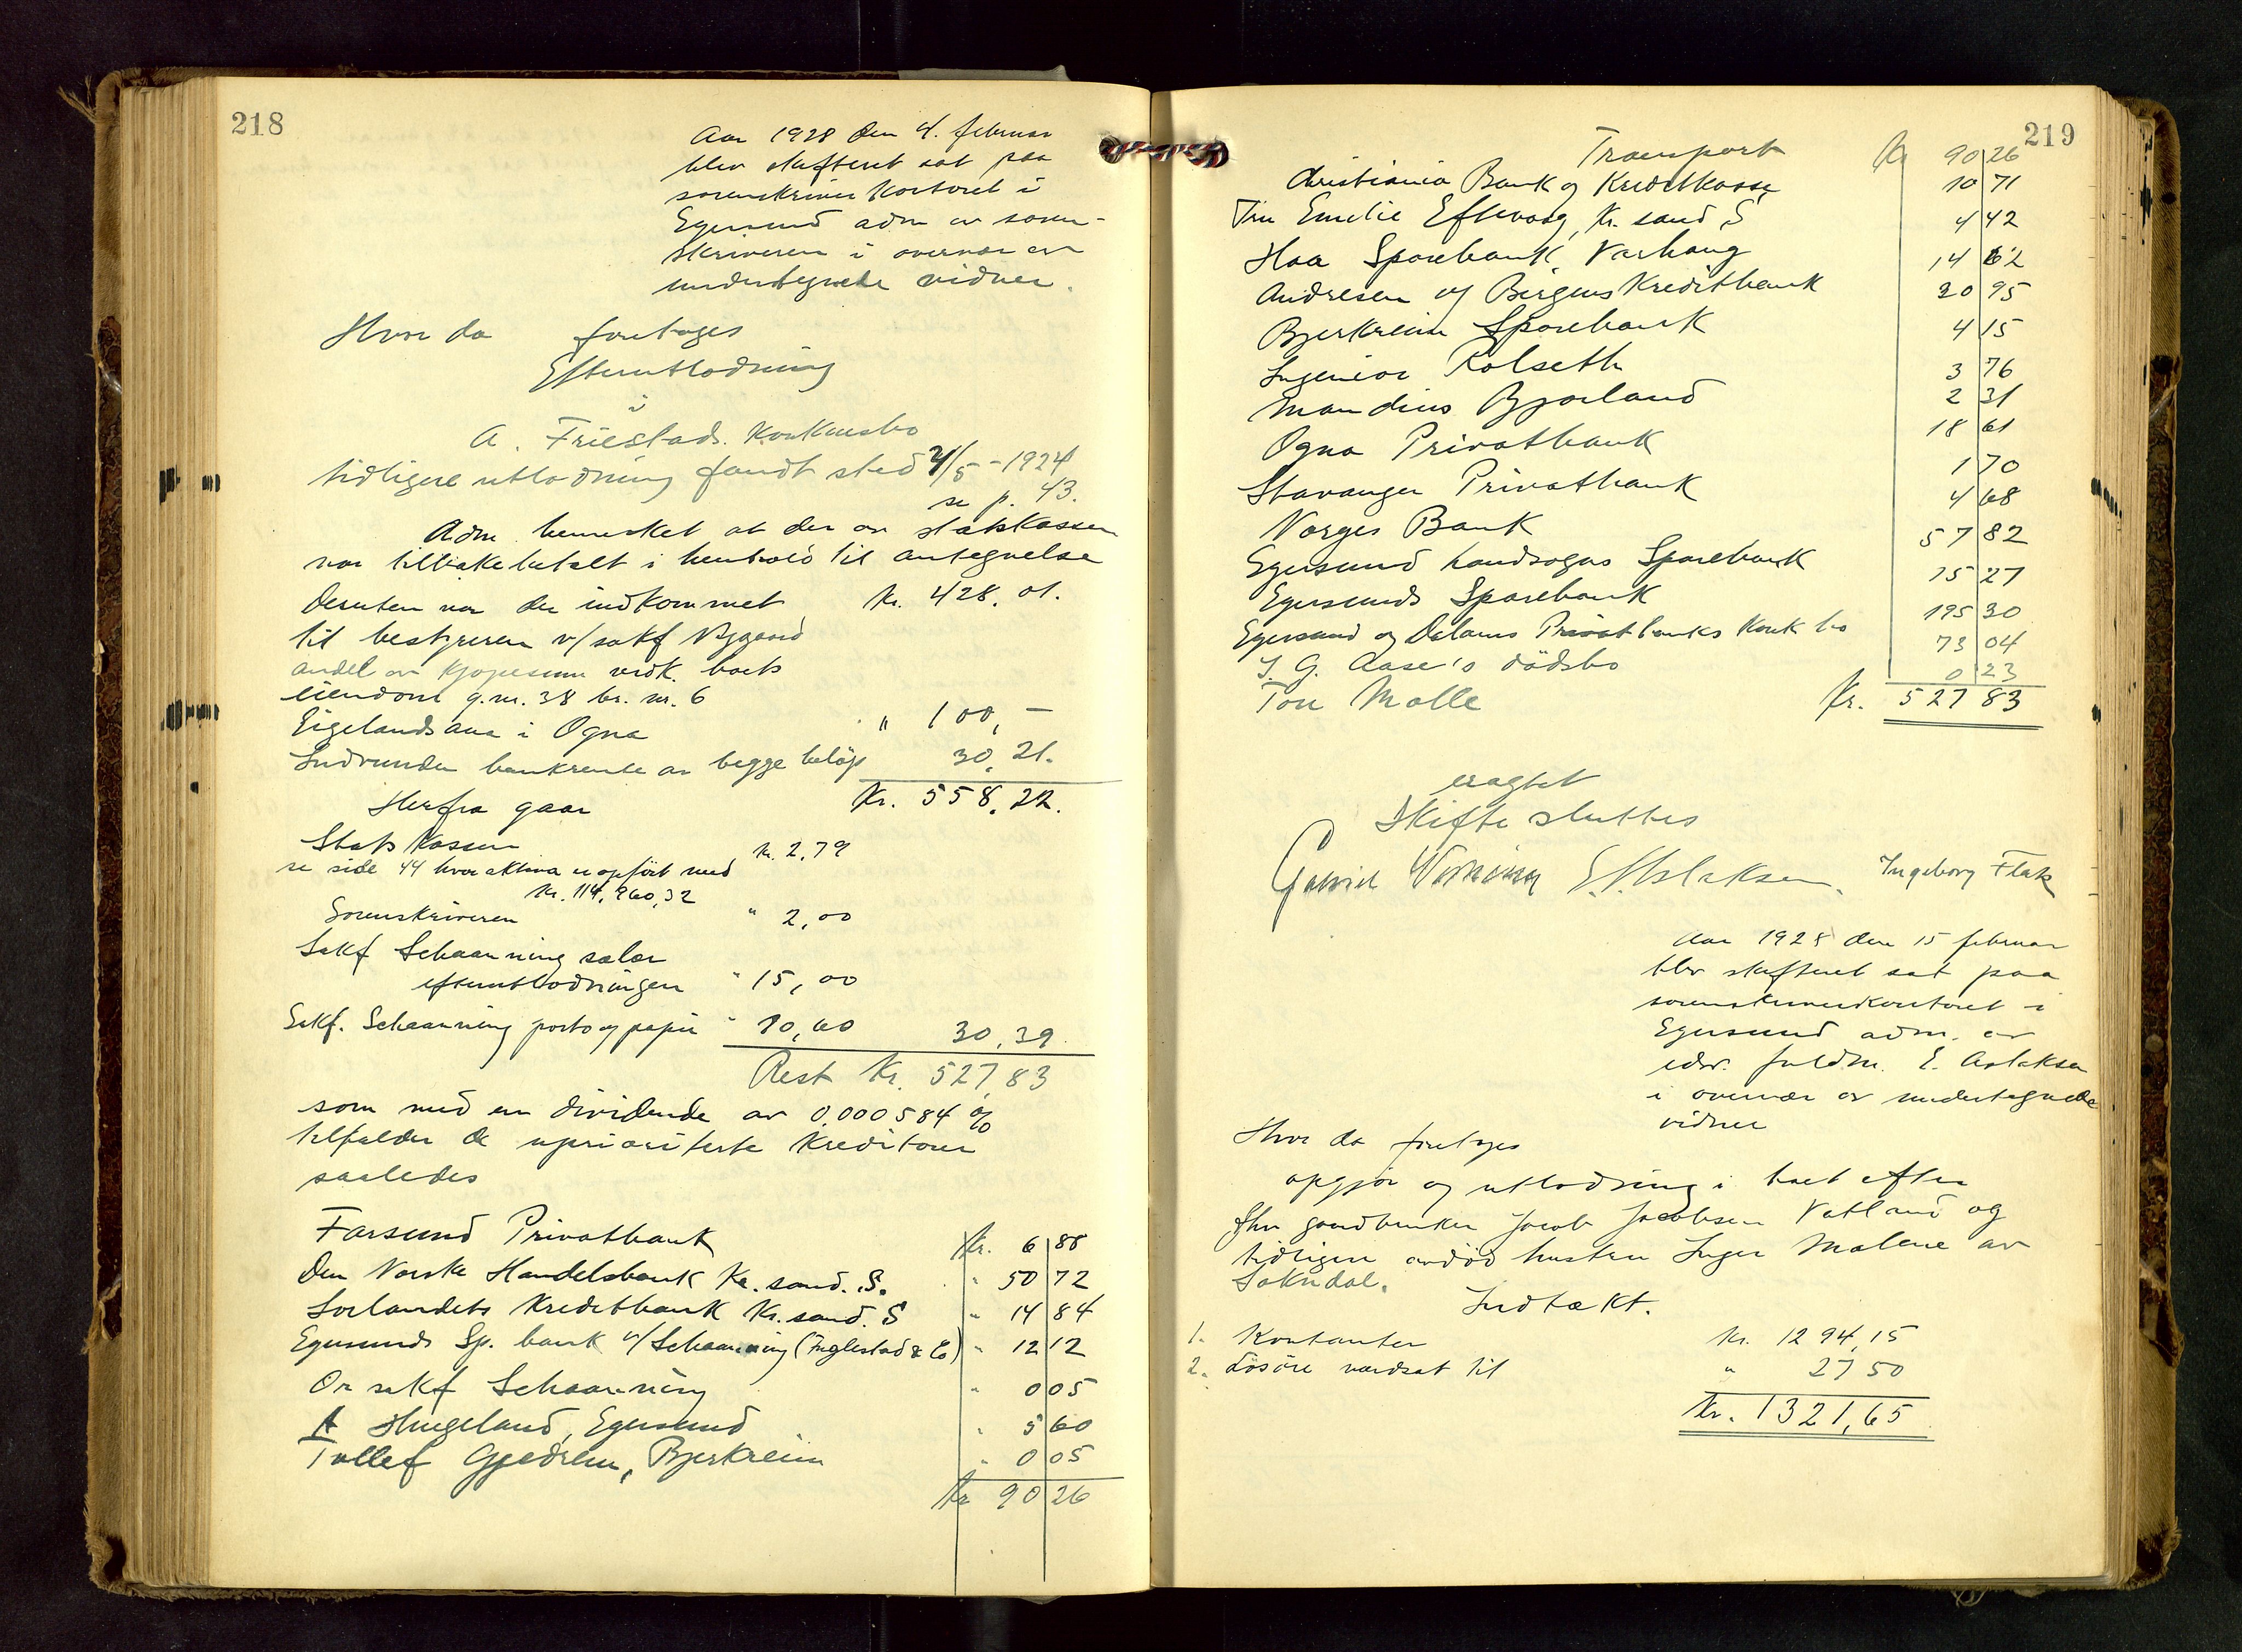 218
Aar 1928 den 4. februar
blev skifteret sat paa
sorenskriverkontoret i
Egersund adm av soren-
skriveren i overvær av
undertegnede vidner.
Hvor da foretages
Efterutlodning
i
A. Friestads Konkursbo
tidligere utlodning fandt sted 2/5 - 1924
se p. 43.
Adm. bemerket at der av statskassen
var tilbakebetalt i henhold til antegnelse
Desuten var der indkommet Kr. 428,01.
til bestyreren v/sakf
andel av kjøpesum vedk. boets
eiendom g.nr. 38 br. nr. 6
Eigelandsaaa i Ogna " 100,-
Indvunden bankrente av begge beløp 30,21.
Herfra gaar Kr. 558,22.
Statskassen kr. 2,79
se side 44 hvor aktiva er opført med
kr. 114,960,32
Sorenskriveren " 2,00
Sakf Schaanning salær
efterutlodningen " 15,00
Sakf. Schaanning porto og papir " 10,60 30,39
Rest Kr. 527,83
som med en dividende av 0,000584 %
tilfalder de uprioriterte Kreditorer
saaledes
Farsund Privatbank Kr. 6 88
Den Norske Handelsbank Kr.sand. S. " 50 72
Sørlandets Kreditbank Kr.sand. S " 14 84
Egersunds Sp. bank v/Schaanning (Puglestad & Co) " 12 12
Or sakf Schaanning " 0 05
A Hungeland, Egersund " 5 60
Tollef Gjedrem, Bjerkreim " 0 05
Kr 90 26
219
Transport Kr 90 26
Christiania Bank og Kreditkasse 10 71
Fru Emelie Eftevaag, Kr. sand S 4 42
Haa Sparebank, Varhaug 14 62
Andresen og Bergens Kreditbank 20 95
Bjerkreim Sparebank 4 15
Ingeniør Rolseth 3 76
Mandius Bjorland 2 31
Ogna Privatbank 18 61
Stavanger Privatbank 1 70
Norges Bank 4 68
Egersund Landsogns Sparebank 57 82
Egersunds Sparebank 15 27
Egersund og Dalarnes Privatbanks Konk bo 195 30
J. G. Aase's dødsbo 73 04
Ton Molle 0 23
Kr. 527 83
eragtet
Skifte sluttes
E. Aslaksen. Ingeborg Flak
Aar 1928 den 15 februar
blev skifteret sat paa
sorenskriverkontoret i
Egersund adm. av
edsv. fuldm. E. Aslaksen
i overvær av undertegnede
vidner
Hvor da foretages
opgjør og utlodning i boet efter
fhv gaardbruker Jacob Jacobsen Vatland og
tidligere avdød hustru Inger Malene av
Sokndal.
Indtækt.
1. Kontanter Kr. 1294,15
2. Løsøre værdsat til " 27 50
Kr. 1321,65